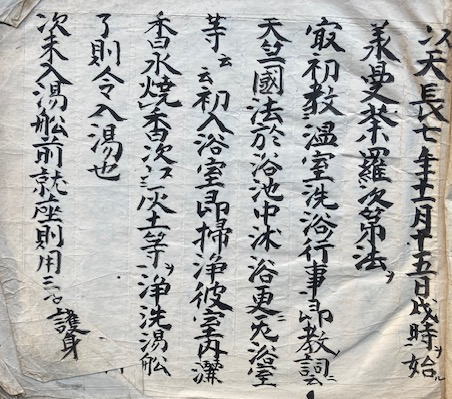 以天長七年十二月十五日戌時始ヲル
羕曼荼羅次第法ヲ
㝡初教温室洗浴行事即教詞云
天竺國法於浴池中沐浴更无浴室
等云云初入浴室即掃浄彼室内灑
香水燒香次以灰土等ヲ浄洗湯舩
了則令入湯也
次未入湯舩前就座則用護身